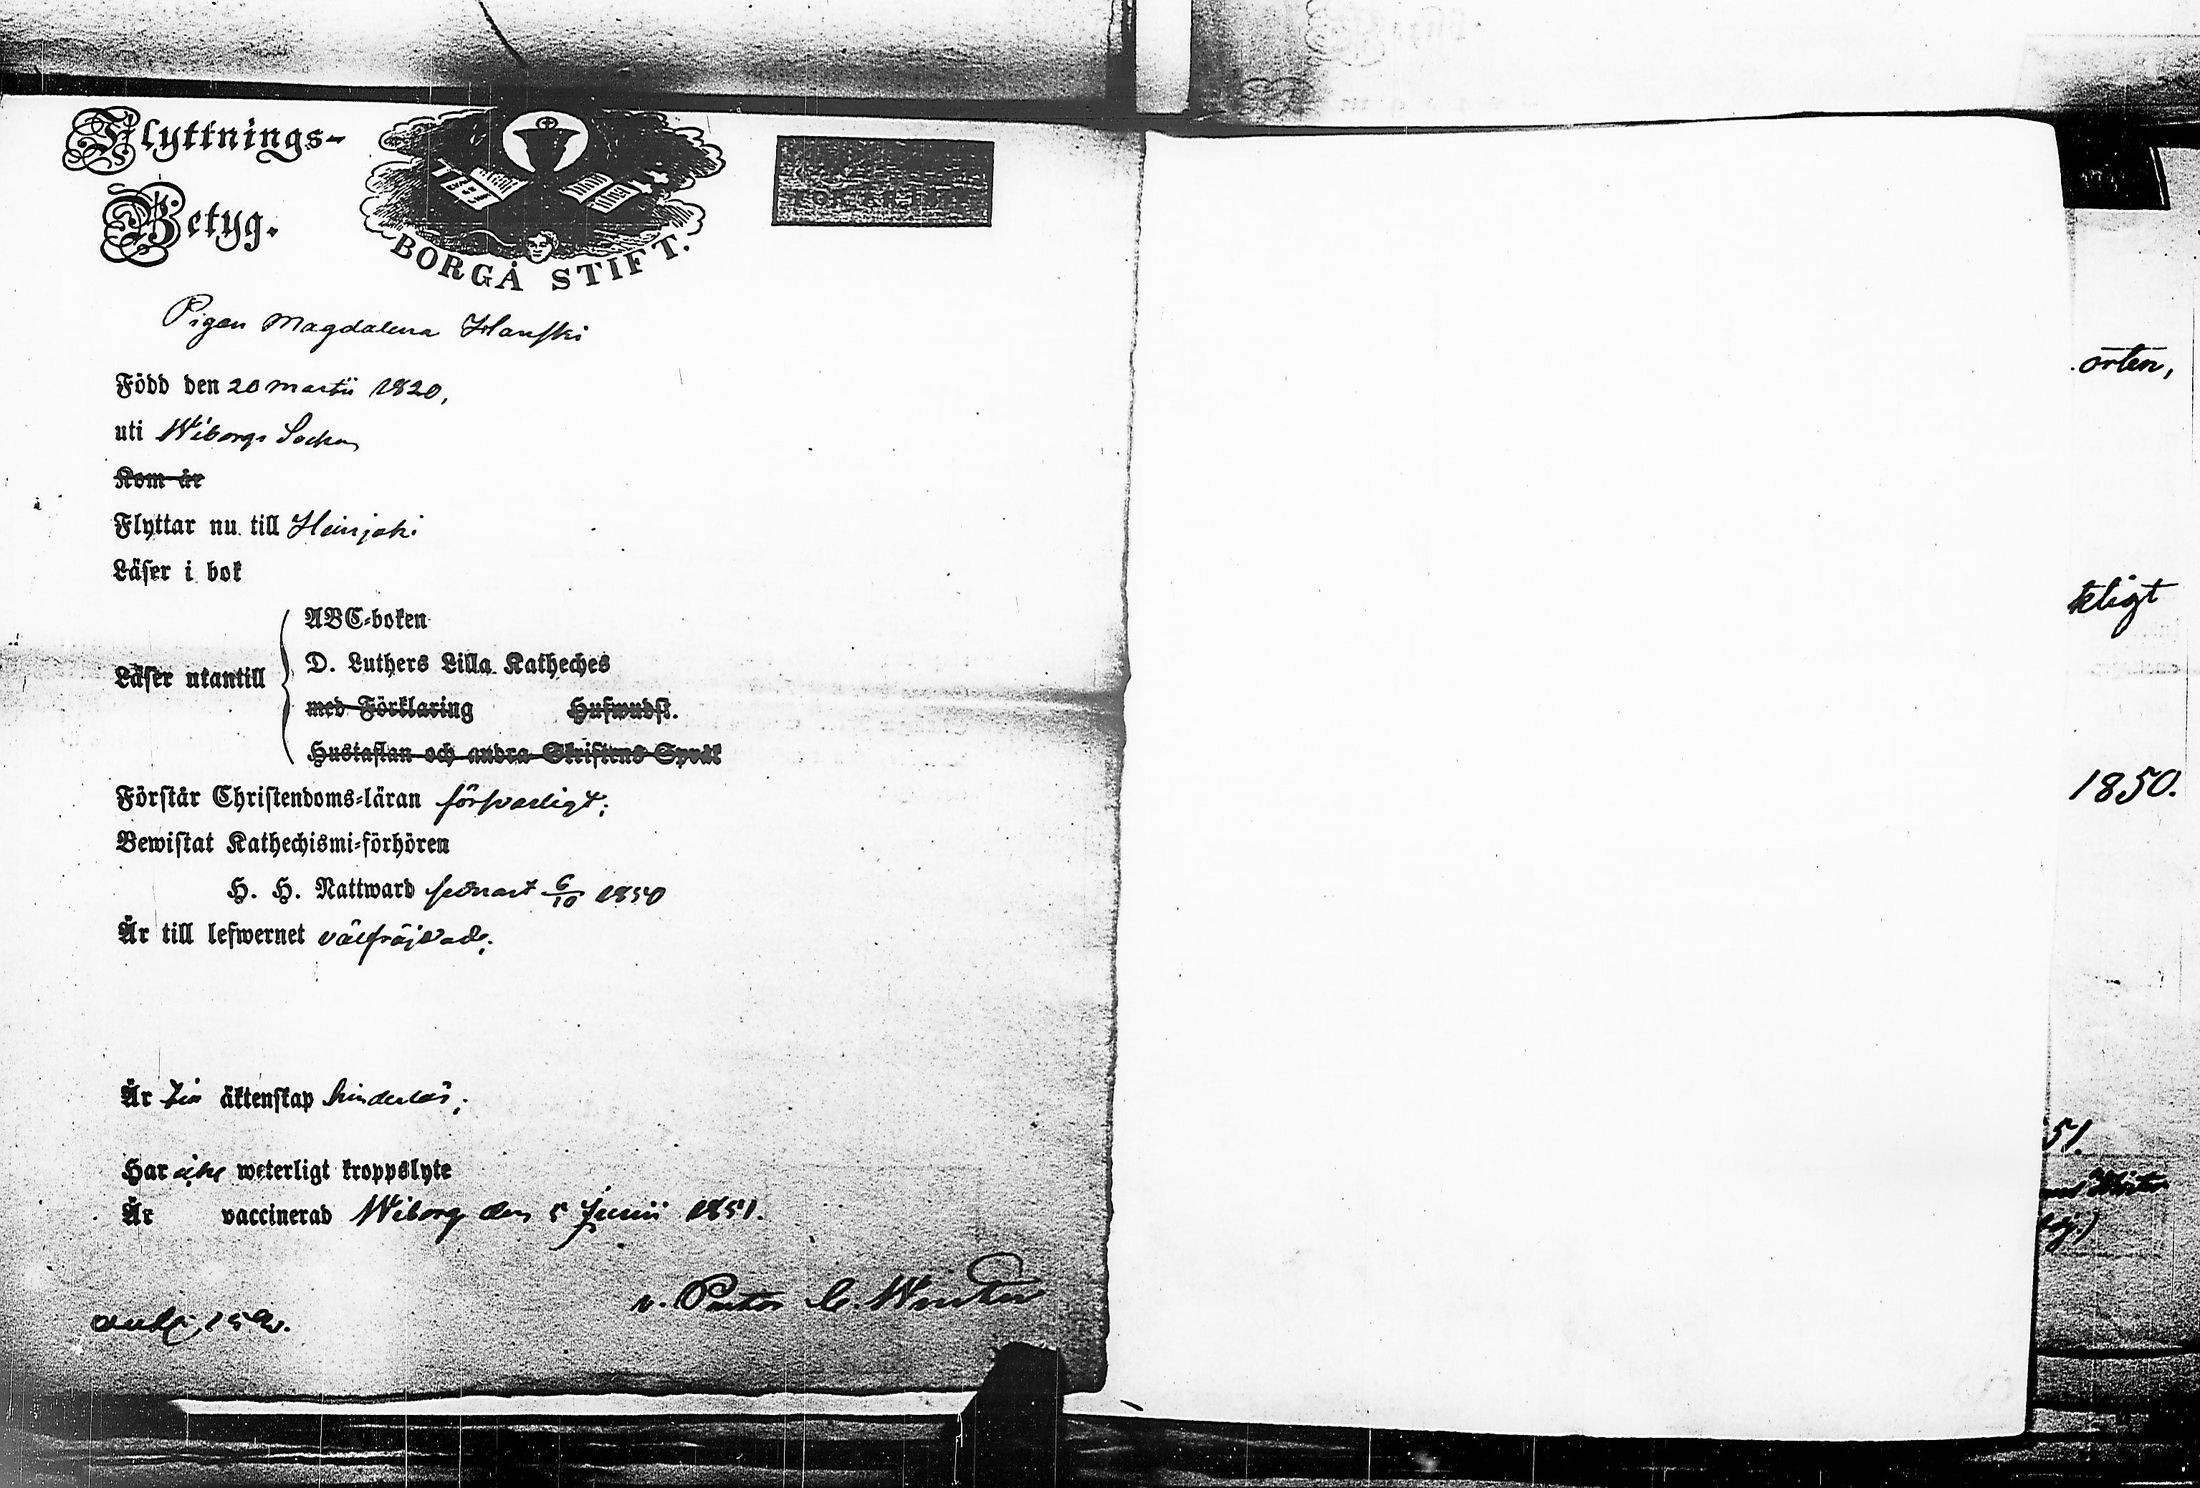 Flyttnings-
Betyg.
BORGÅ STIFT.
Pigan Magdalena Hanski
Född den 20 Martii 1820,
uti Wiborgs Socken
Kom år
Flyttar nu till Heinjoki
Läser i bok
Läser utantill
ABC-boken
D. Luthers Lilla Katheches
med Förklaring Husswudst.
Hustaflan och andra Skriftens Språk
Förstår Christendoms-läran försvarligt;
Bewistat Kathechismi-förhören
H. H. Nattward senast 6/10 1850
Är till lefwernet välfräjdad;
Är till äktenskap hinderlös;
Har icke weterligt kroppslyte
Är vaccinerad Wiborg den 5 Junii 1851.
v. Pastor C. Winter
orten,
kligt
1850.
51.